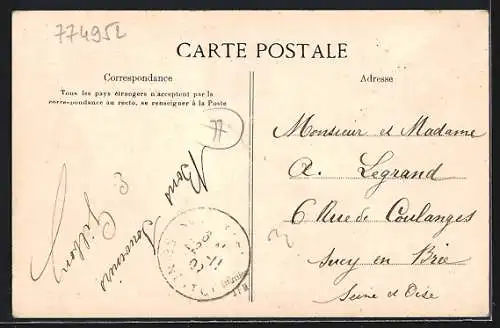 774952
CARTE POSTALE
Correspondance
Tous les pays étrangers n'acceptent pas la
correspondance au recto, se renseigner à la Poste
77
Bons
Souvenirs
Adresse
Monsieur et Madame
A. Legrand
6 Rue de Coulanges
Sucy en Brie
Seine et Oise